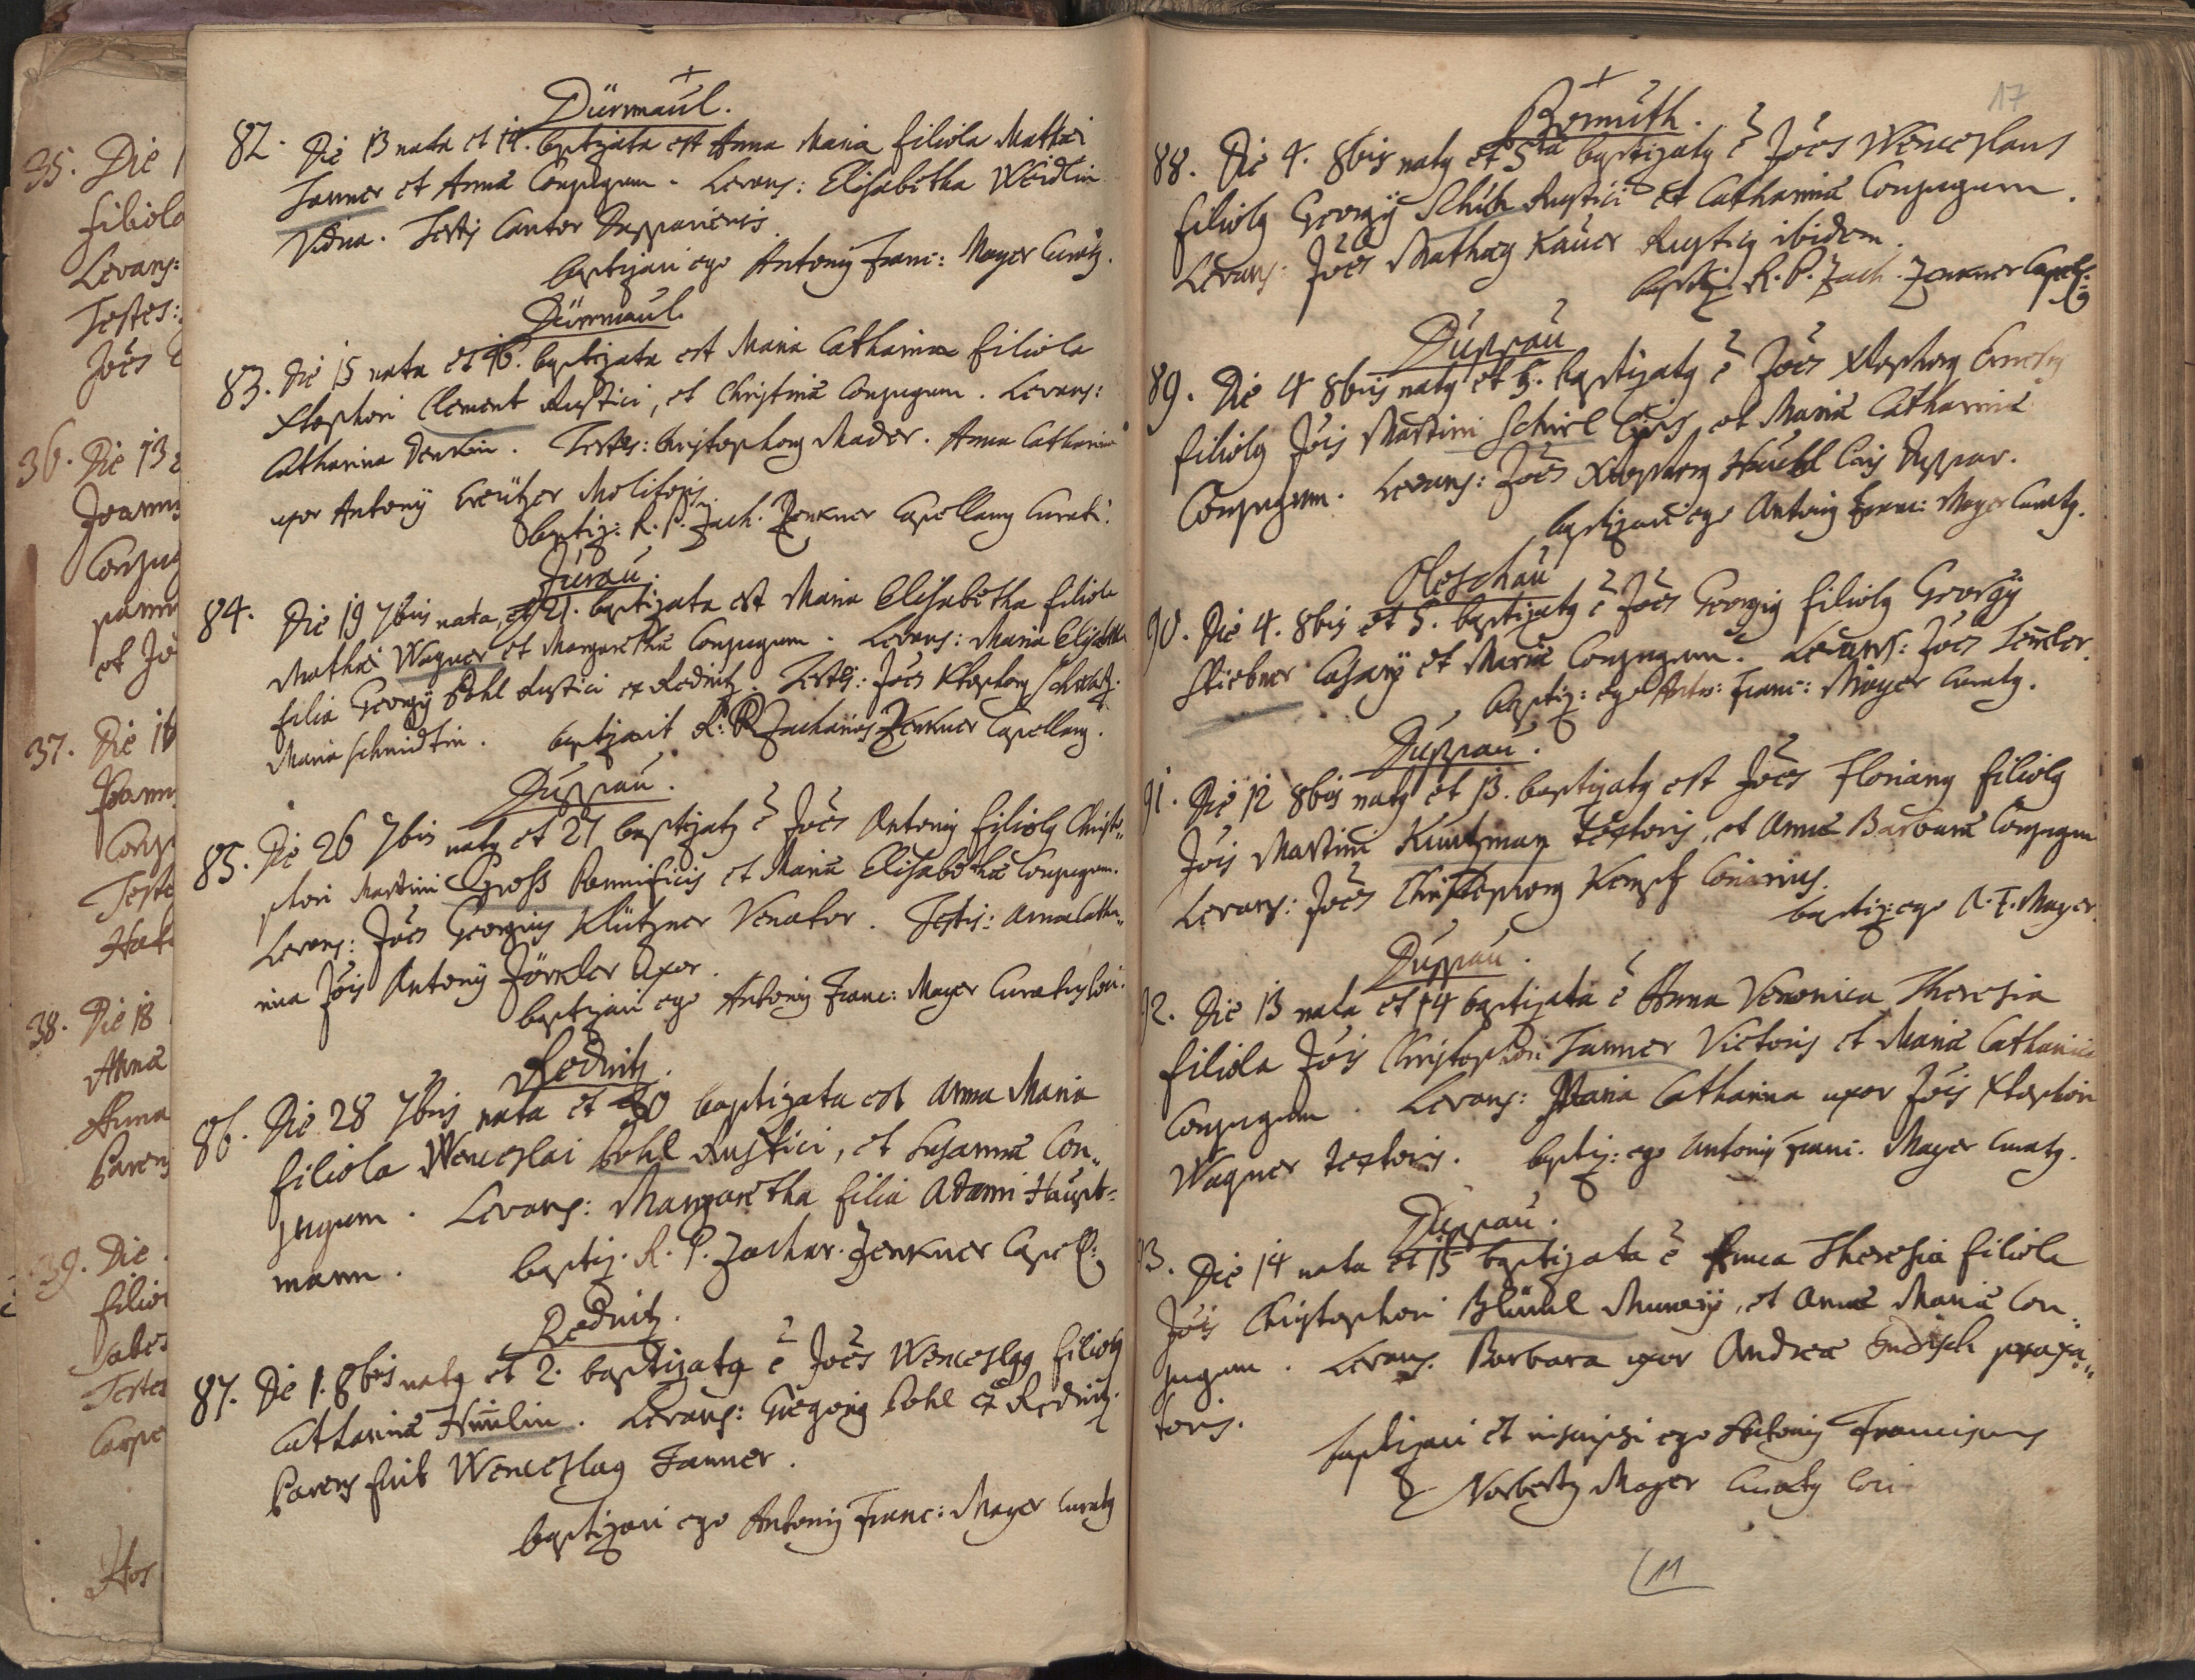 35. Die 1
filiola
Levans:
Testes:
Joes
36. Die 13
Joann
Conjug
et Jo
37. Die 16
Joann
Conj
Teste
38. Die 18
Anna
Anna
Parens
39. Die
filio
Teste
Hos
Dürrmaul.
82. Die 13 nata et 14. baptizata est Anna Maria filiola Mathæi
Tanner et Annæ Conjugum. Levans: Elisabetha Weidlin
Vidua. Testis Cantor Duppaviensis.
baptizavi ego Antonius Franc: Mayer Curatus.
Dürrmaul.
83. Die 15 nata et 16. baptizata est Maria Catharina filiola
Xstophori Clement Rustici, et Christinæ Conjugum. Levans:
Catharina Denkin. Testes: Christophorus Mader. Anna Catharina
uxor Antonÿ Creützer Molitoris.
baptiz: R. P. Zach. Zenkner Capellanus Curati.
Jurau.
84. Die 19 7bris nata, et 21. baptizata est Maria Elisabetha filiola
Mathæi Wagner et Margarethæ Conjugum. Levans: Maria Elisabetha
filia Georgÿ Pohl Rustici ex Rednitz. Testes: Joes Xstophorus Schwartz.
Maria Schmidtin. baptizavit R: P. Zacharias Zenkner Capellanus.
Duppau.
85. Die 26 7bris natus et 27 baptizatus ē Joēs Antonius filiolus Christo„
phori Martini Gross Pannificis et Mariæ Elisabethæ Conjugum.
Levans: Joēs Georgius Klützner Venator. Testis: Anna Catha„
rina Jois Antonÿ Jörkler Uxor.
baptizavi ego Antonius Franc: Mayer Curatus loci.
Rednitz.
86. Die 28 7bris nata et 30 baptizata est Anna Maria
filiola Wenceslai Pohl Rustici, et Susannæ Con„
jugum. Levans: Margaretha filia Adami Haupt=
mann. baptiz. R. P. Zachar. Zenkner Capell:
Rednitz.
87. Die 1. 8bris natus et 2. baptizatus ē Joēs Wenceslaus filiolus
Catharinæ . Levans: Gregorius Pohl ex Rednitz.
Parens fuit Wenceslaus Tanner.
baptizavi ego Antonius Franc: Mayer Curatus
17
Promuth.
88. Die 4. 8bris natus et 5ta baptizatus ē Joēs Wenceslaus
filiolus Georgÿ Schuh Rustici et Catharinæ Conjugum.
Levans: Joēs Mathæus Kauer Rusticus ibidem.
baptiz. R. P. Zach. Zenkner Capell:
Duppau
89. Die 4 8bris natus et 5. baptizatus ē Joēs Xstophorus Ernestus
filiolus Jois Martini Schirl Civis, et Mariæ Catharinæ
Conjugum. Levans: Joēs Xstophorus Civis Duppav.
baptizavi ego Antonius Franc: Mayer Curatus.
Oleschau
90. Die 4. 8bris et 5. baptizatus ē Joēs Georgius filiolus Georgÿ
Stiebner Casarÿ et Mariæ Conjugum. Levans: Joēs Temler.
baptiz: ego Anto: Franc: Mayer Curatus.
Duppau.
91. Die 12 8bris natus et 13. baptizatus est Joēs Florianus filiolus
Jois Martini Kuntzman Textoris, et Annæ Barbaræ Conjugum
Levans: Joēs Christophorus Kempf .
baptiz: ego A. F. Mayer.
Duppau.
92. Die 13 nata et 14 baptizata ē Anna Veronica Theresia
filiola Jois Christophori Tanner Victoris et Mariæ Catharinæ
Conjugum. Levans: Maria Catharina uxor Jois Xstophori
Wagner Textoris. baptiz: ego Antonius Franc. Mayer Curatus.
Duppau.
93. Die 14 nata et 15 baptizata ē Anna Theresia filiola
Jois Christophori Blüml Murarÿ, et Annæ Mariæ Con„
jugum. Levans. Barbara uxor Andreæ
toris.
baptizavi et inscripsi ego Antonius Franciscus
Norbertus Mayer Curatus loci
11